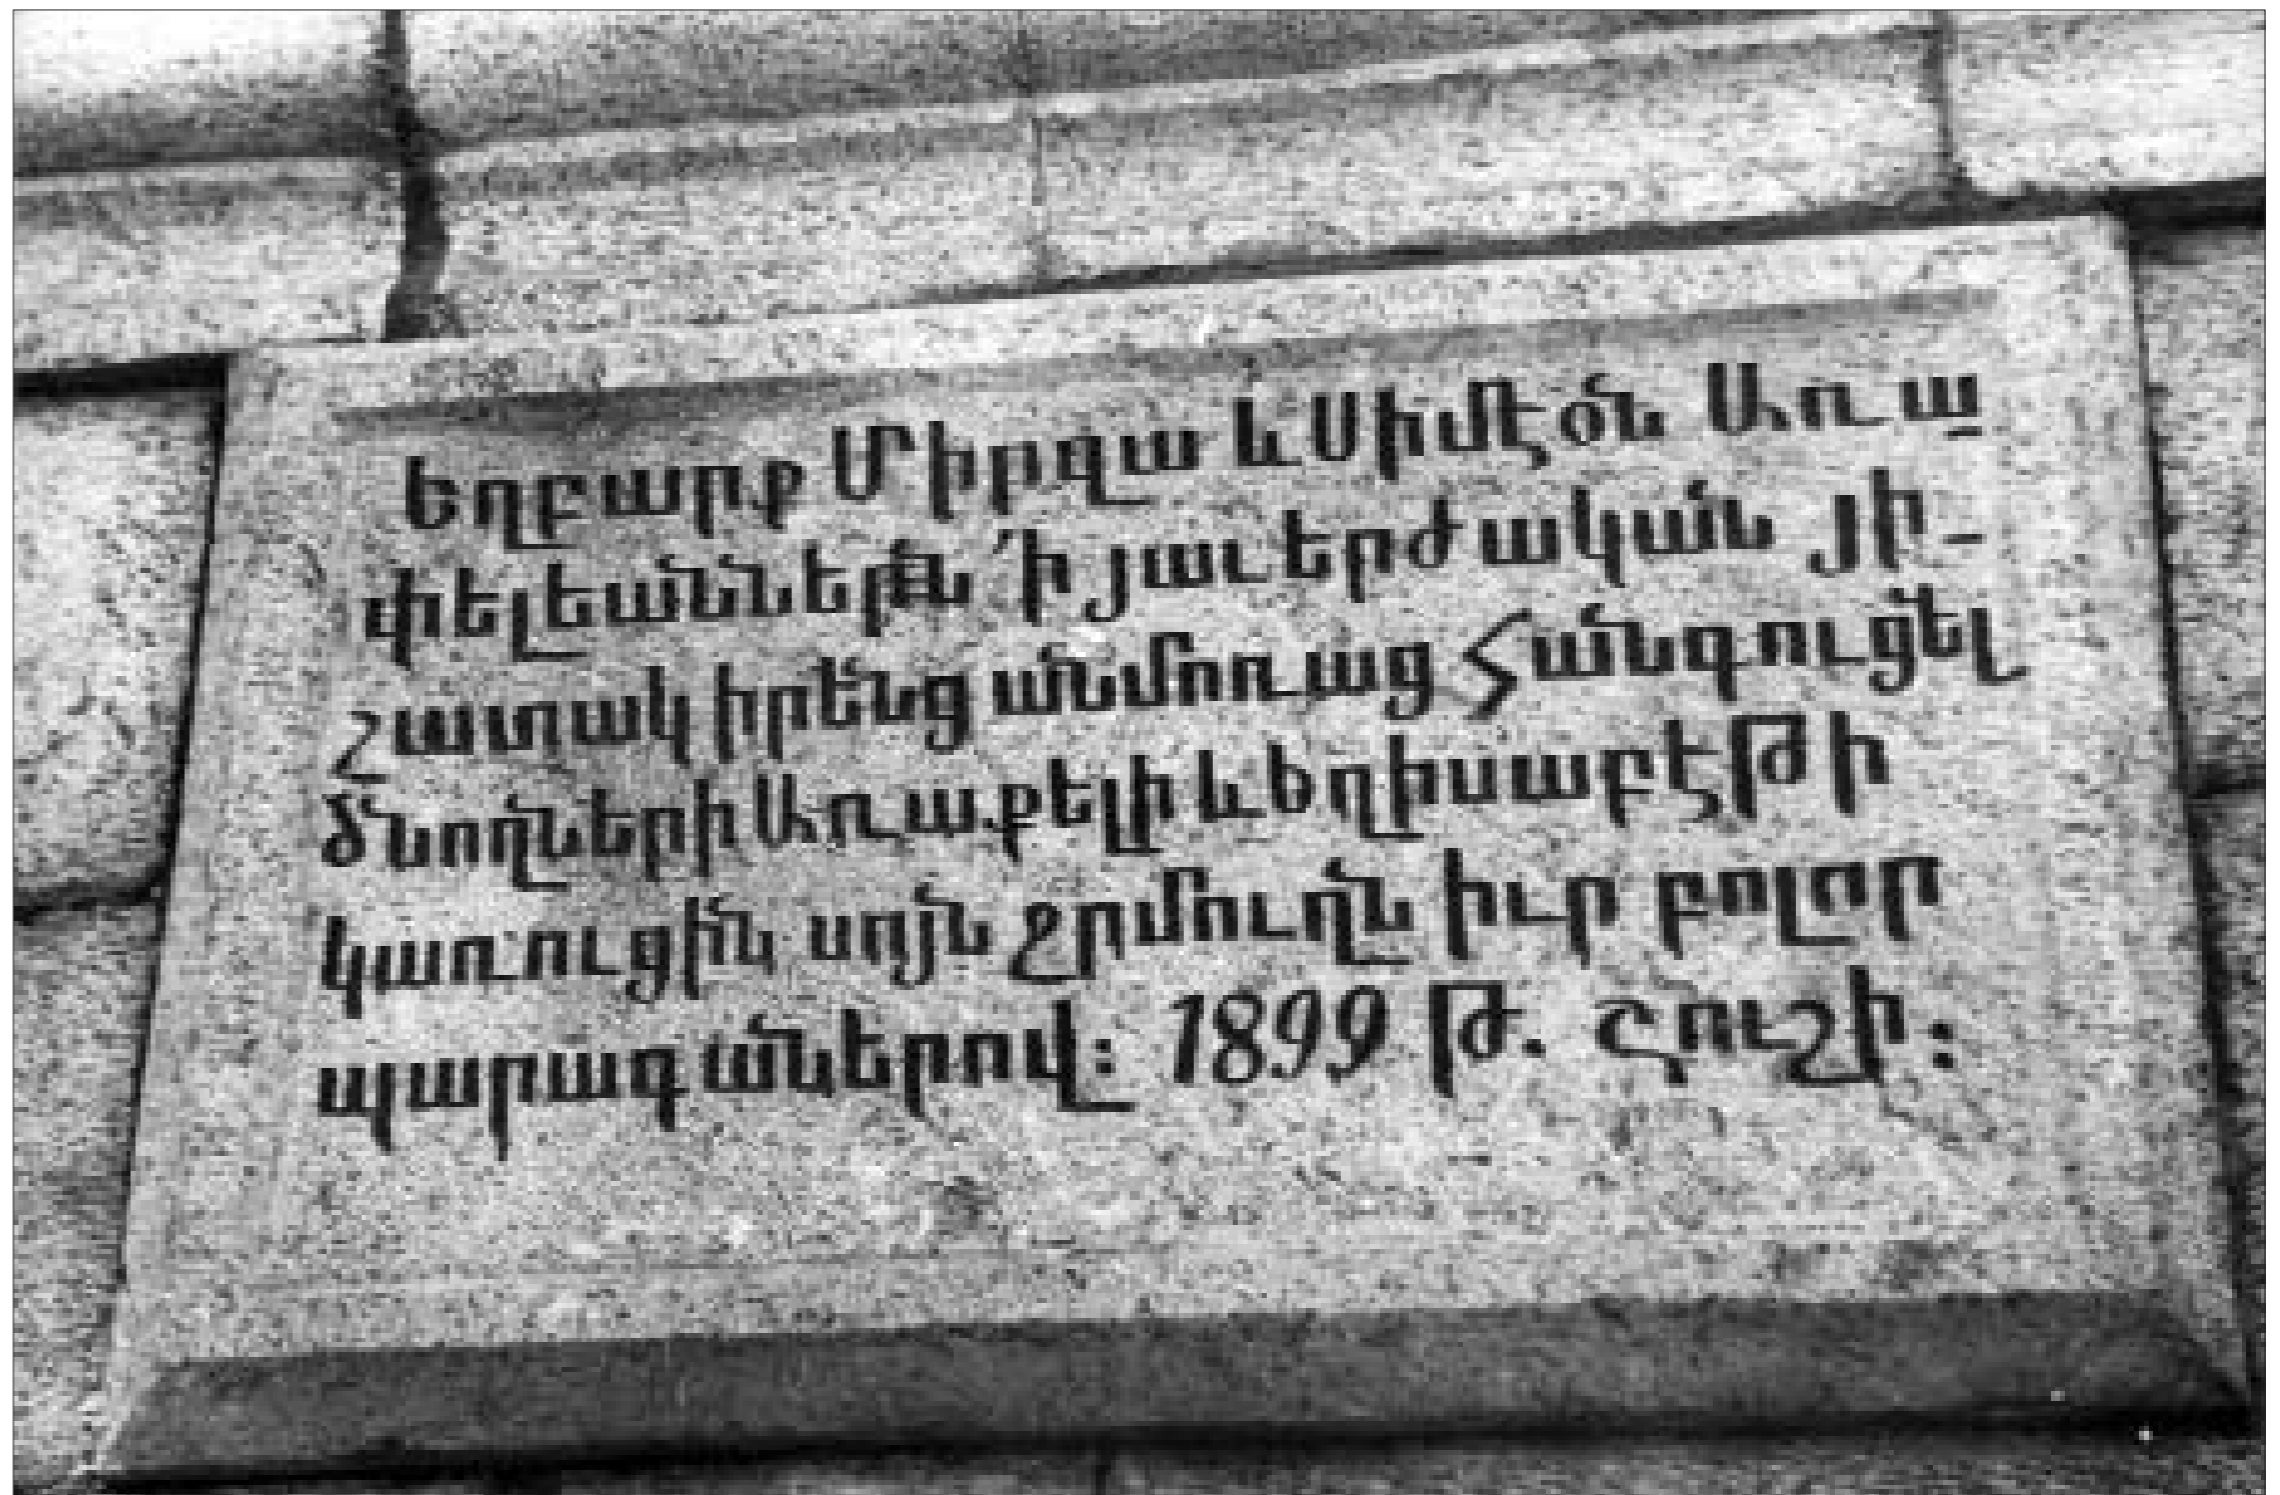 Եղբարք Միրզա և Սիմէօն Առա
փելեաններն ՛ի յաւերժական յի-
շատակ իրենց անմոռաց Հանգուցել
ծնողների Առաքելի և Եղիսաբէթի
կառուցին սոյն ջրմուղն իւր բոլոր
պարագաներով։ 1899 Թ. Շուշի։